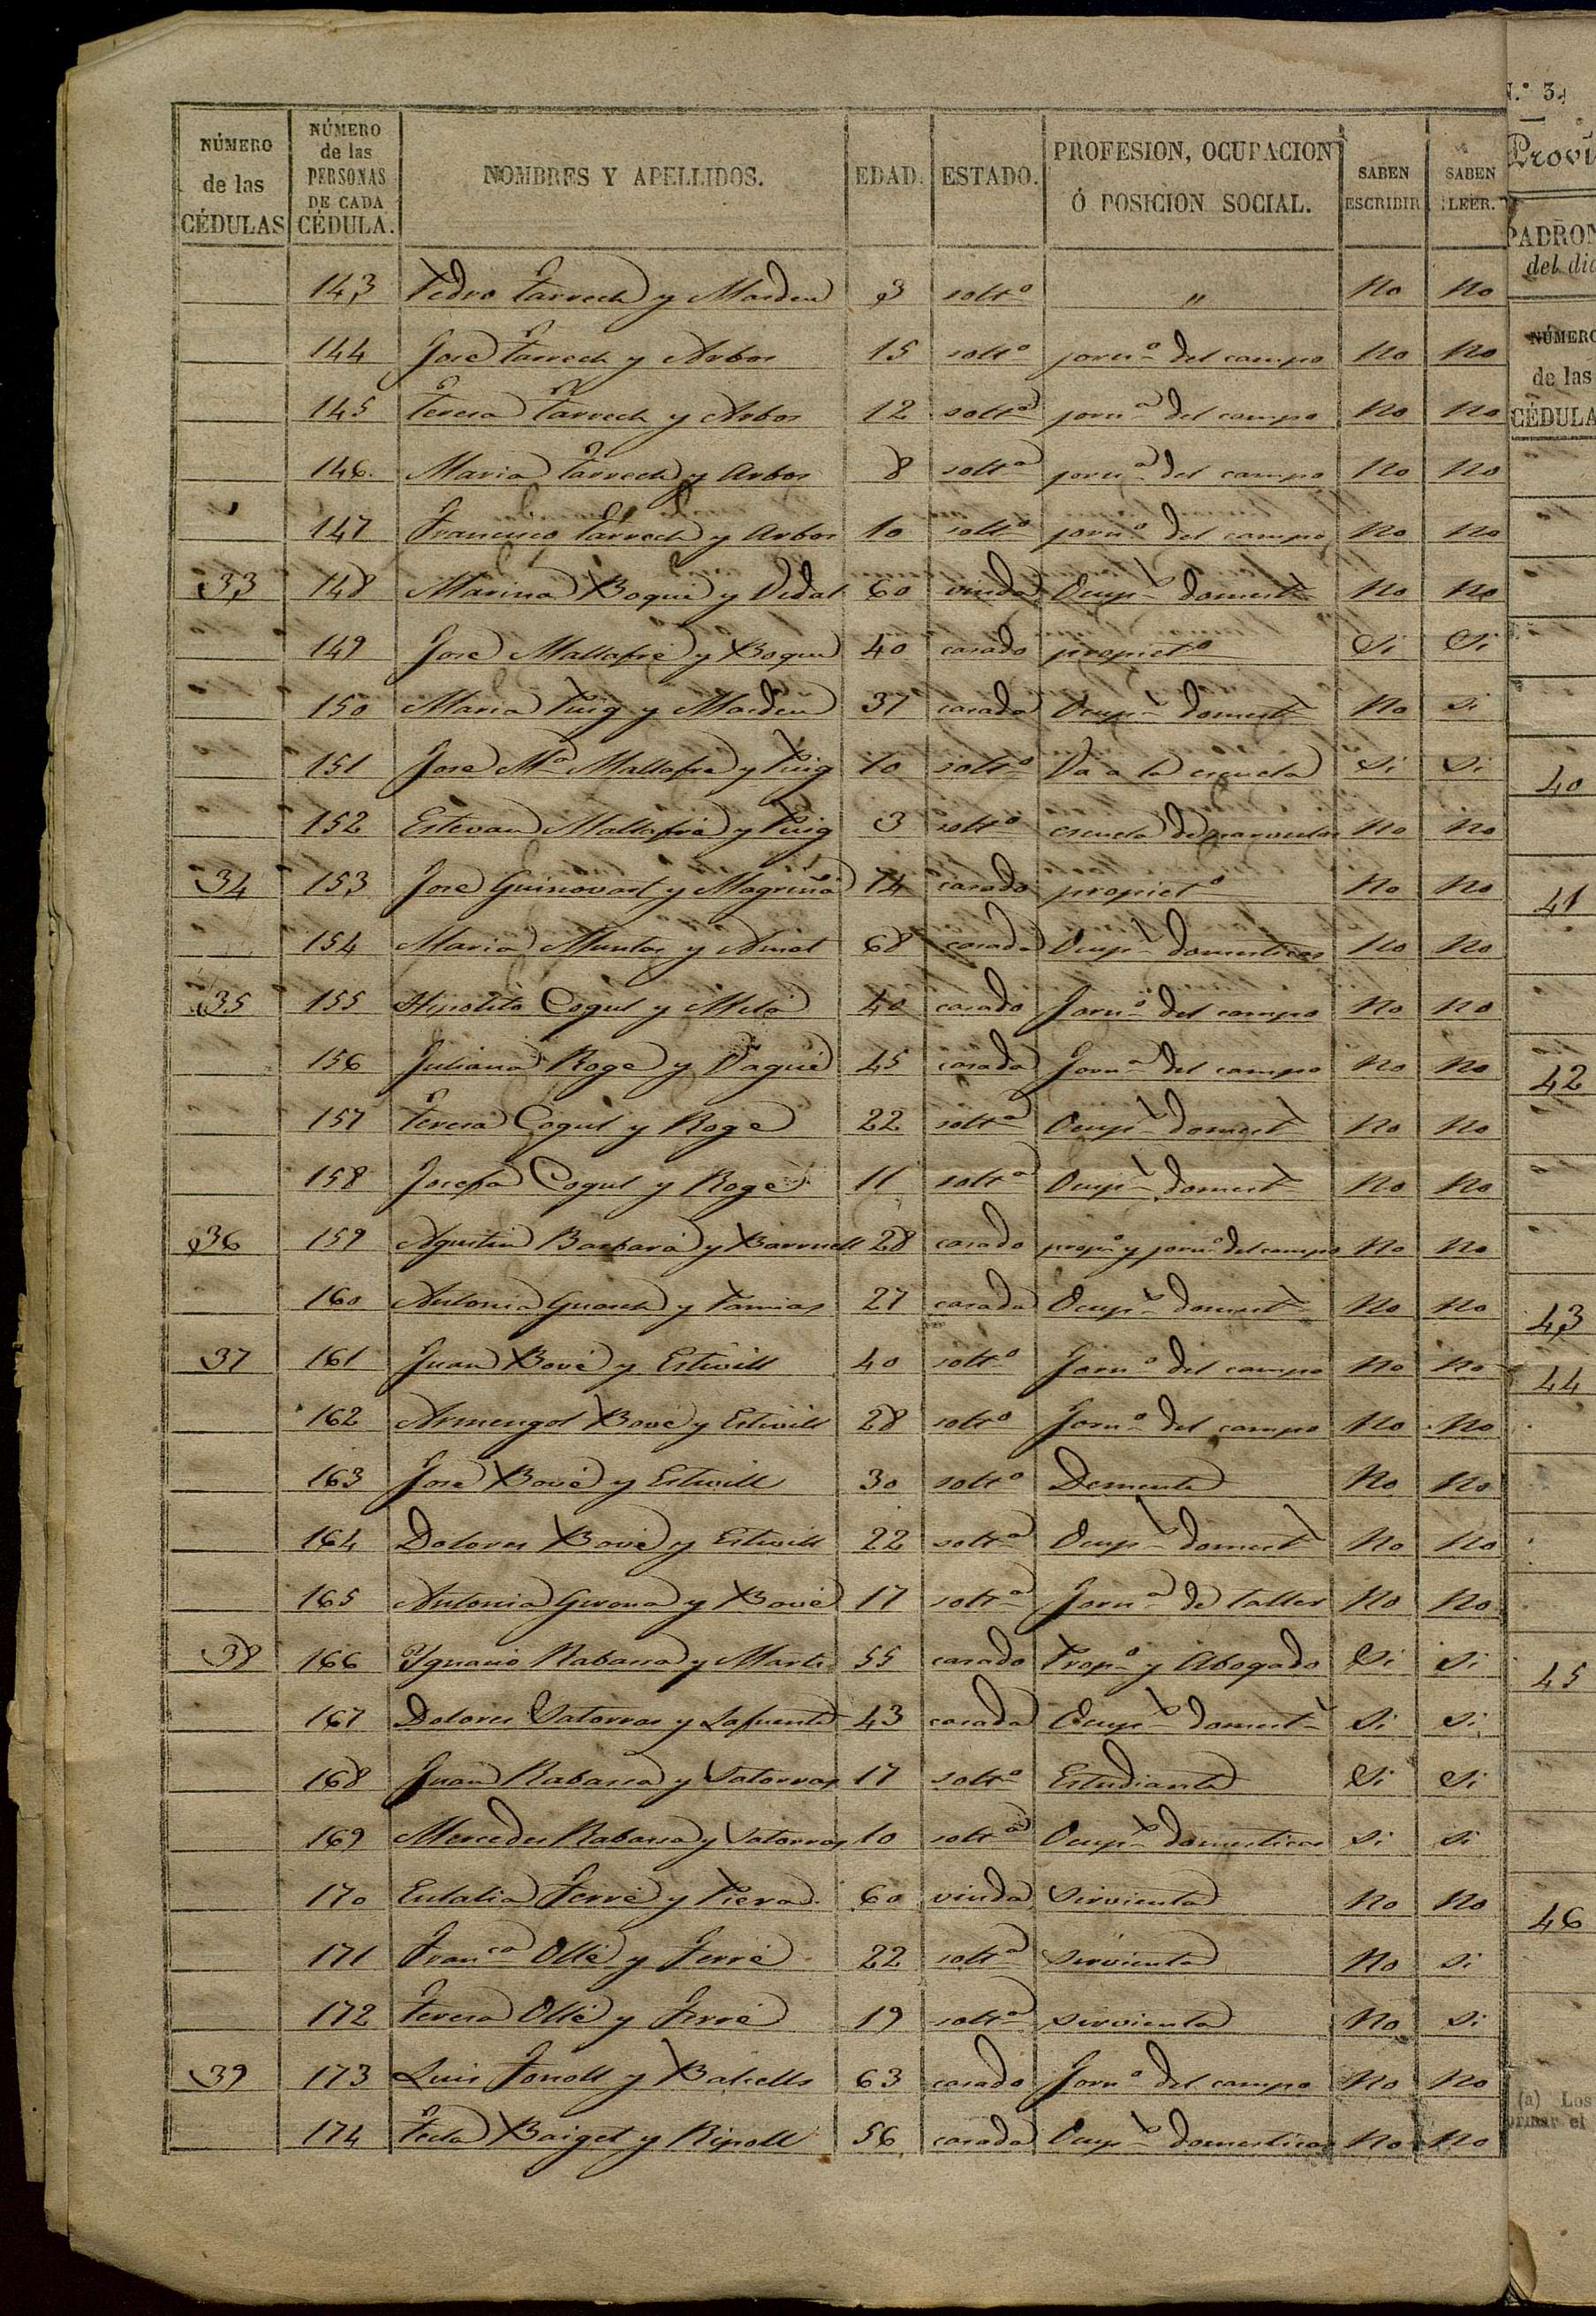 NÚMERO de las CÉDULAS NÚMERO de las PERSONAS DE CADA CÉDULA. NOMBRES Y APELLIDOS. EDAD. ESTADO. PROFESION, OCUPACION Ó POSICION SOCIAL. SABEN ESCRIBIR SABEN LEER.
143 Pedro Tarrech y Mardeu 3 solt.o " No No
144 José Tarrech y Arbos 15 solt.o jorn.o del campo No No
145 Teresa Tarrech y Arbos 12 solt.a jorn.a del campo No No
146. Maria Tarrech y Arbos 8 solt.a jorn.a del campo No No
147 Francisco Tarrech y Arbos 10 solt.o jorn.o del campo No No
33 148 Marina Boqué y Vidal 60 viuda Ocup.s domest.s No No
149 José Mallafré y Boqué 40 casado propiet.o Si Si
150 Maria Puig y Mardeu 37 casada Ocup.s domest.s No Si
151 José M.a Mallafré y Puig 10 solt.o Va a la escuela Si Si
152 Estevan Mallafré y Puig 3 solt.o escuela de parvulos No No
34 153 José Guinovart y Magriñá 74 casado propiet.o No No
154 Maria Muntas y Amat 68 casada Ocup.s domesticas No No
35 155 Hipolito Cogul y Milá 40 casado Jorn.o del campo No No
156 Juliana Rogé y Vagué 45 casada Jorn.a del campo No No
157 Teresa Cogul y Rogé 22 solt.a Ocup.s domest.s No No
158 Josefa Cogul y Rogé 11 solt.a Ocup.s domest.s No No
36 159 Agustin Barbará y Barrnell 28 casado prop.o y jorn.o del campo No No
160 Antonia Guasch y Tamias 27 casada Ocup.s domest.s No No
37 161 Juan Bové y Estivill 40 solt.o Jorn.o del campo No No
162 Armengol Bové y Estivill 28 solt.o Jorn.o del campo No No
163 José Bové y Estivill 30 solt.o Demente No No
164 Dolores Bové y Estivill 22 solt.a Ocup.s domest.s No No
165 Antonia Gerona y Bové 17 solt.a Jorn.a de taller No No
38 166 Ygnacio Rabassa y Marti 55 casado Prop.o y Abogado Si Si
167 Dolores Satorras y Lafuente 43 casada Ocup.s domest.s Si Si
168 Juan Rabassa y Satorras 17 solt.o Estudiante Si Si
169 Mercedes Rabassa y Satorras 10 solt.a Ocup.s domesticas Si Si
170 Eulalia Ferré y Piera 60 viuda Sirvienta No No
171 Fran.ca Ollé y Ferré 22 solt.a Sirvienta No Si
172 Teresa Ollé y Ferré 19 solt.a Sirvienta No Si
39 173 Luis Fonoll y Balcells 63 casado Jorn.o del campo No No
174 Tecla Baiget y Ripoll 56 casada Ocup.s domesticas No No
N.º 3.
Provi
PADRON
del dia
NÚMERO
de las
CÉDULA
40
41
42
43
44
45
46
(a) Los
primar el